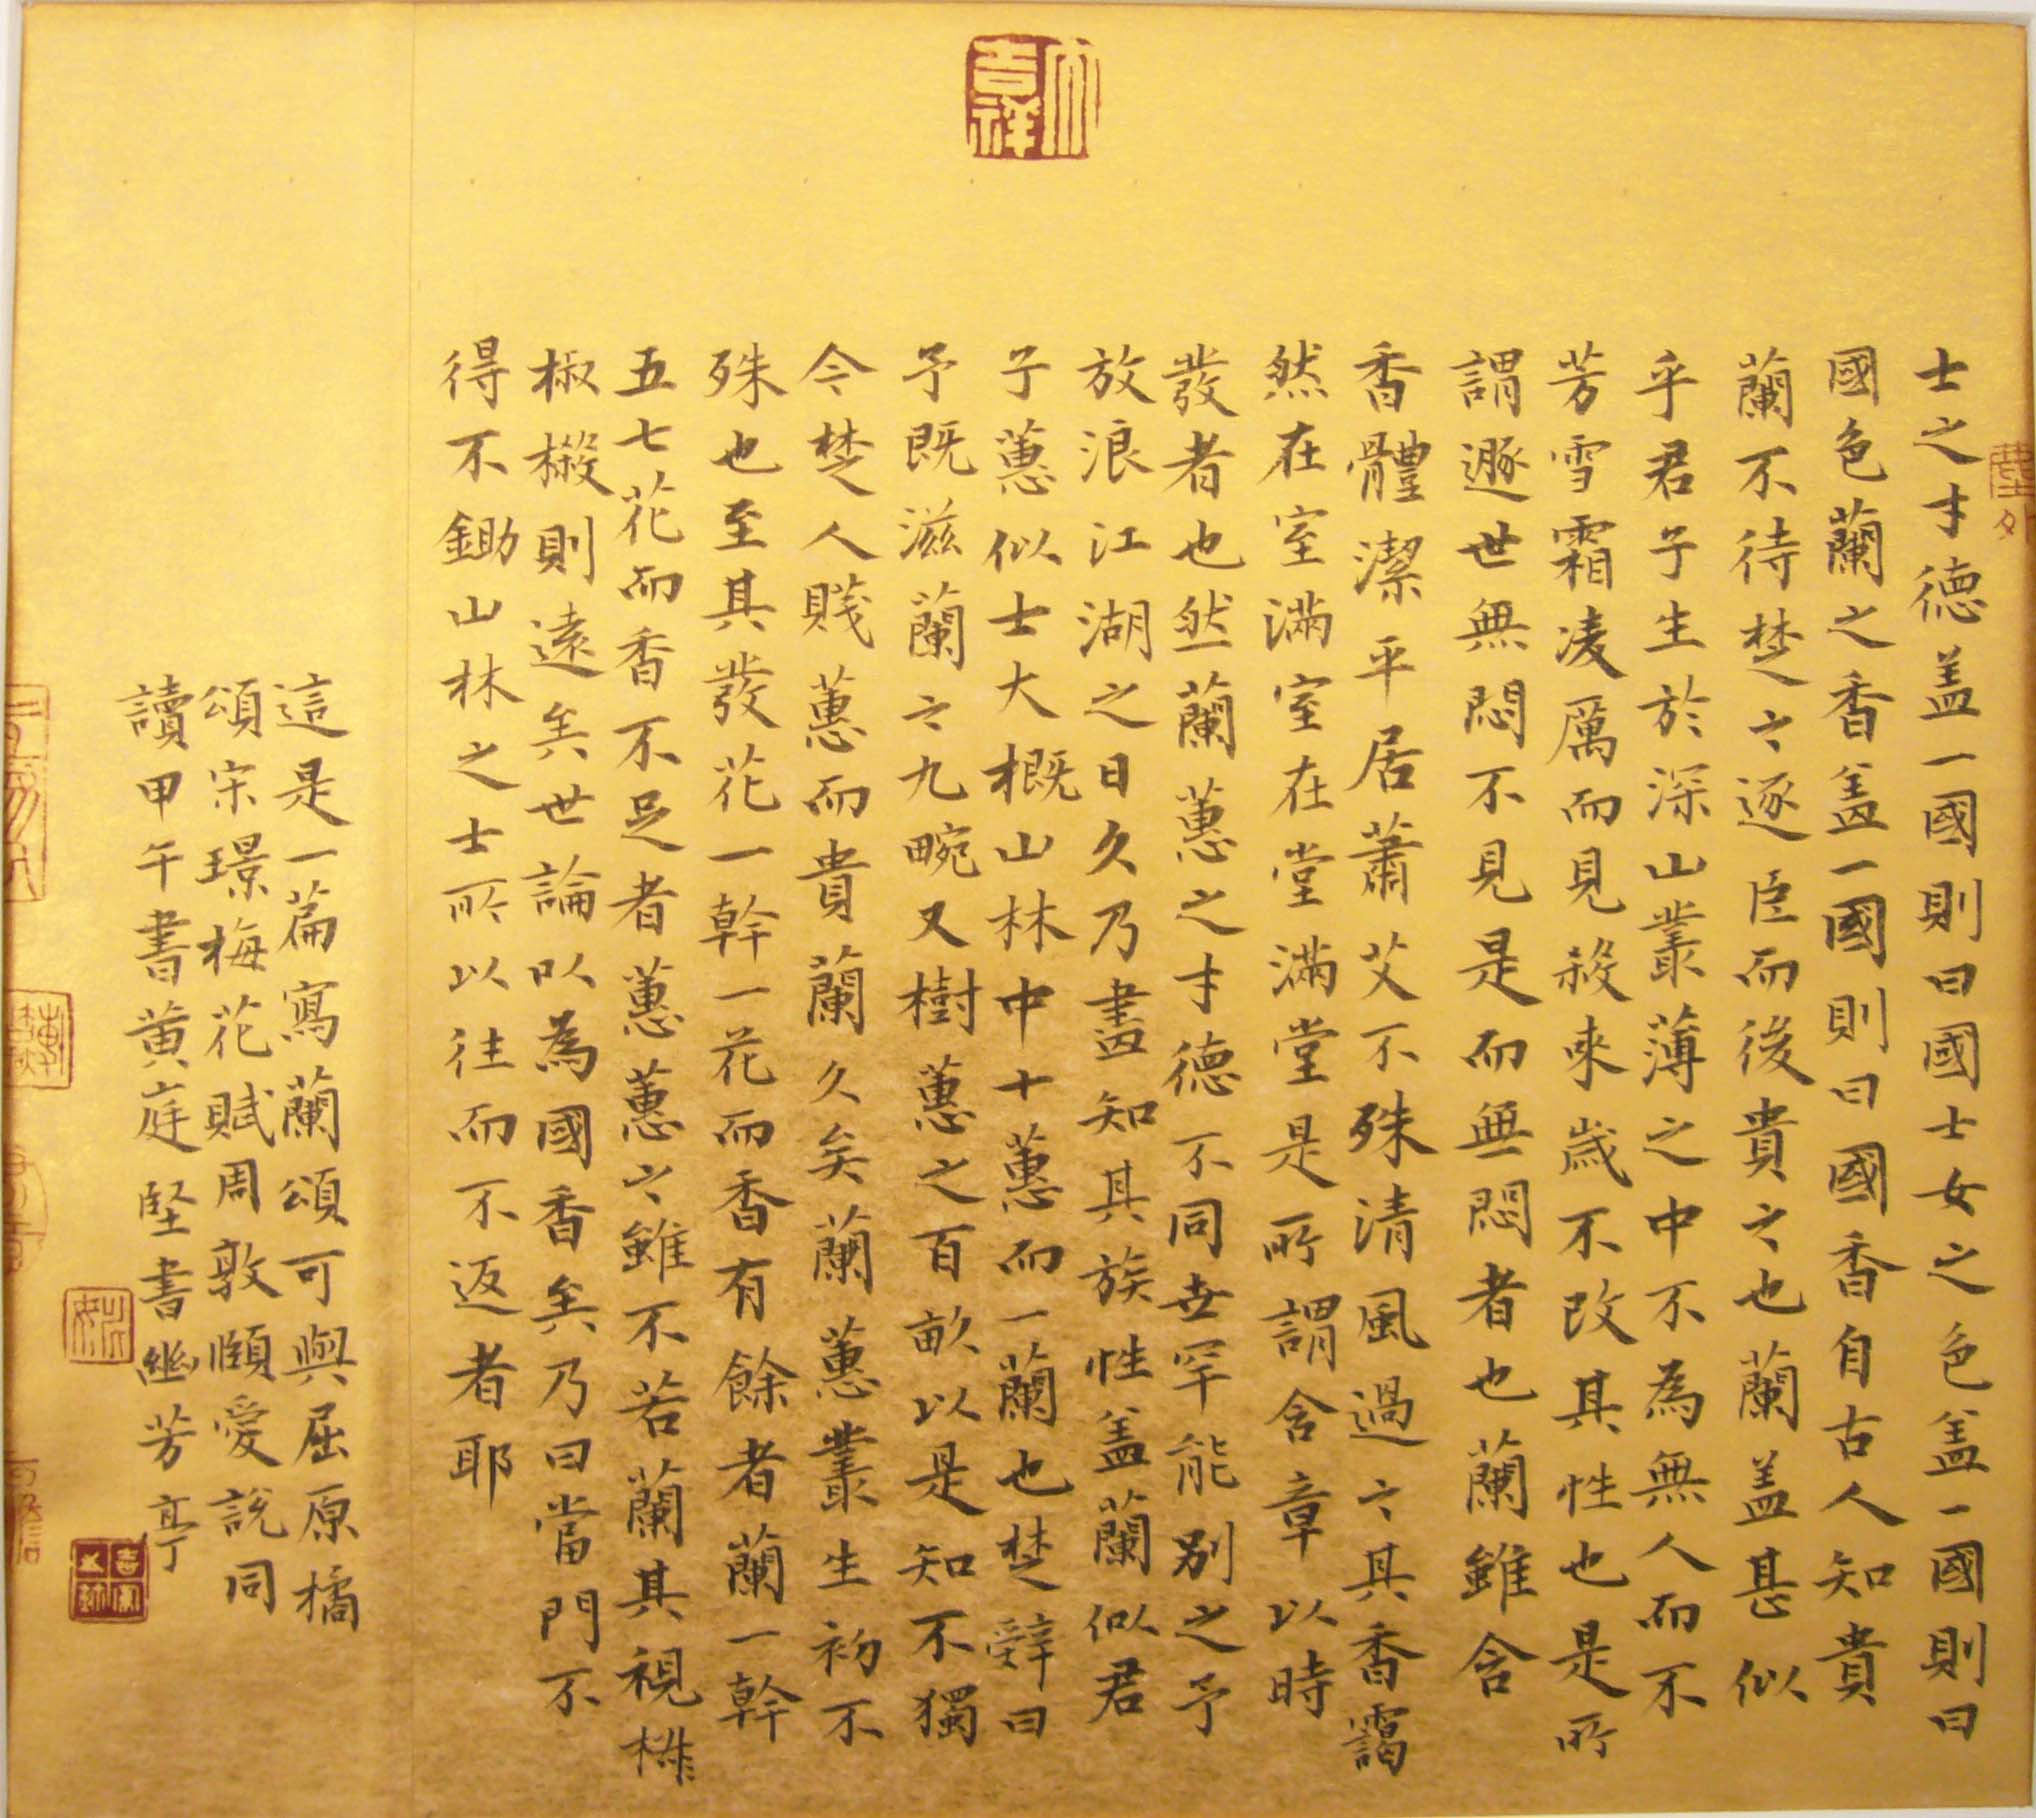 大吉祥
士之才德盖一國則曰國士女之色盖一國則曰
國色蘭之香盖一國則曰國香自古人知貴
蘭不待楚之逐臣而後貴之也蘭盖甚似
乎君子生於深山叢薄之中不為無人而不
芳雪霜凌厲而見殺来歲不改其性也是所
謂遯世無悶不見是而無悶者也蘭雖含
香體潔平居蕭艾不殊清風過之其香靄
然在室滿室在堂滿堂是所謂含章以時
發者也然蘭蕙之才德不同世罕能别之予
放浪江湖之日久乃盡知其族性盖蘭似君
子蕙似士大概山林中十蕙而一蘭也楚辭曰
予既滋蘭之九畹又樹蕙之百畝以是知不獨
今楚人賤蕙而貴蘭久矣蘭蕙叢生初不
殊也至其發花一幹一花而香有餘者蘭一幹
五七花而香不足者蕙蕙之雖不若蘭其視椒
椒樧則遠矣世論以為國香矣乃曰當門不
得不鋤山林之士所以往而不返者耶
這是一篇寫蘭頌可與屈原橘
頌宋璟梅花賦周敦頤愛説同
讀甲午書黄庭堅書幽芳亭